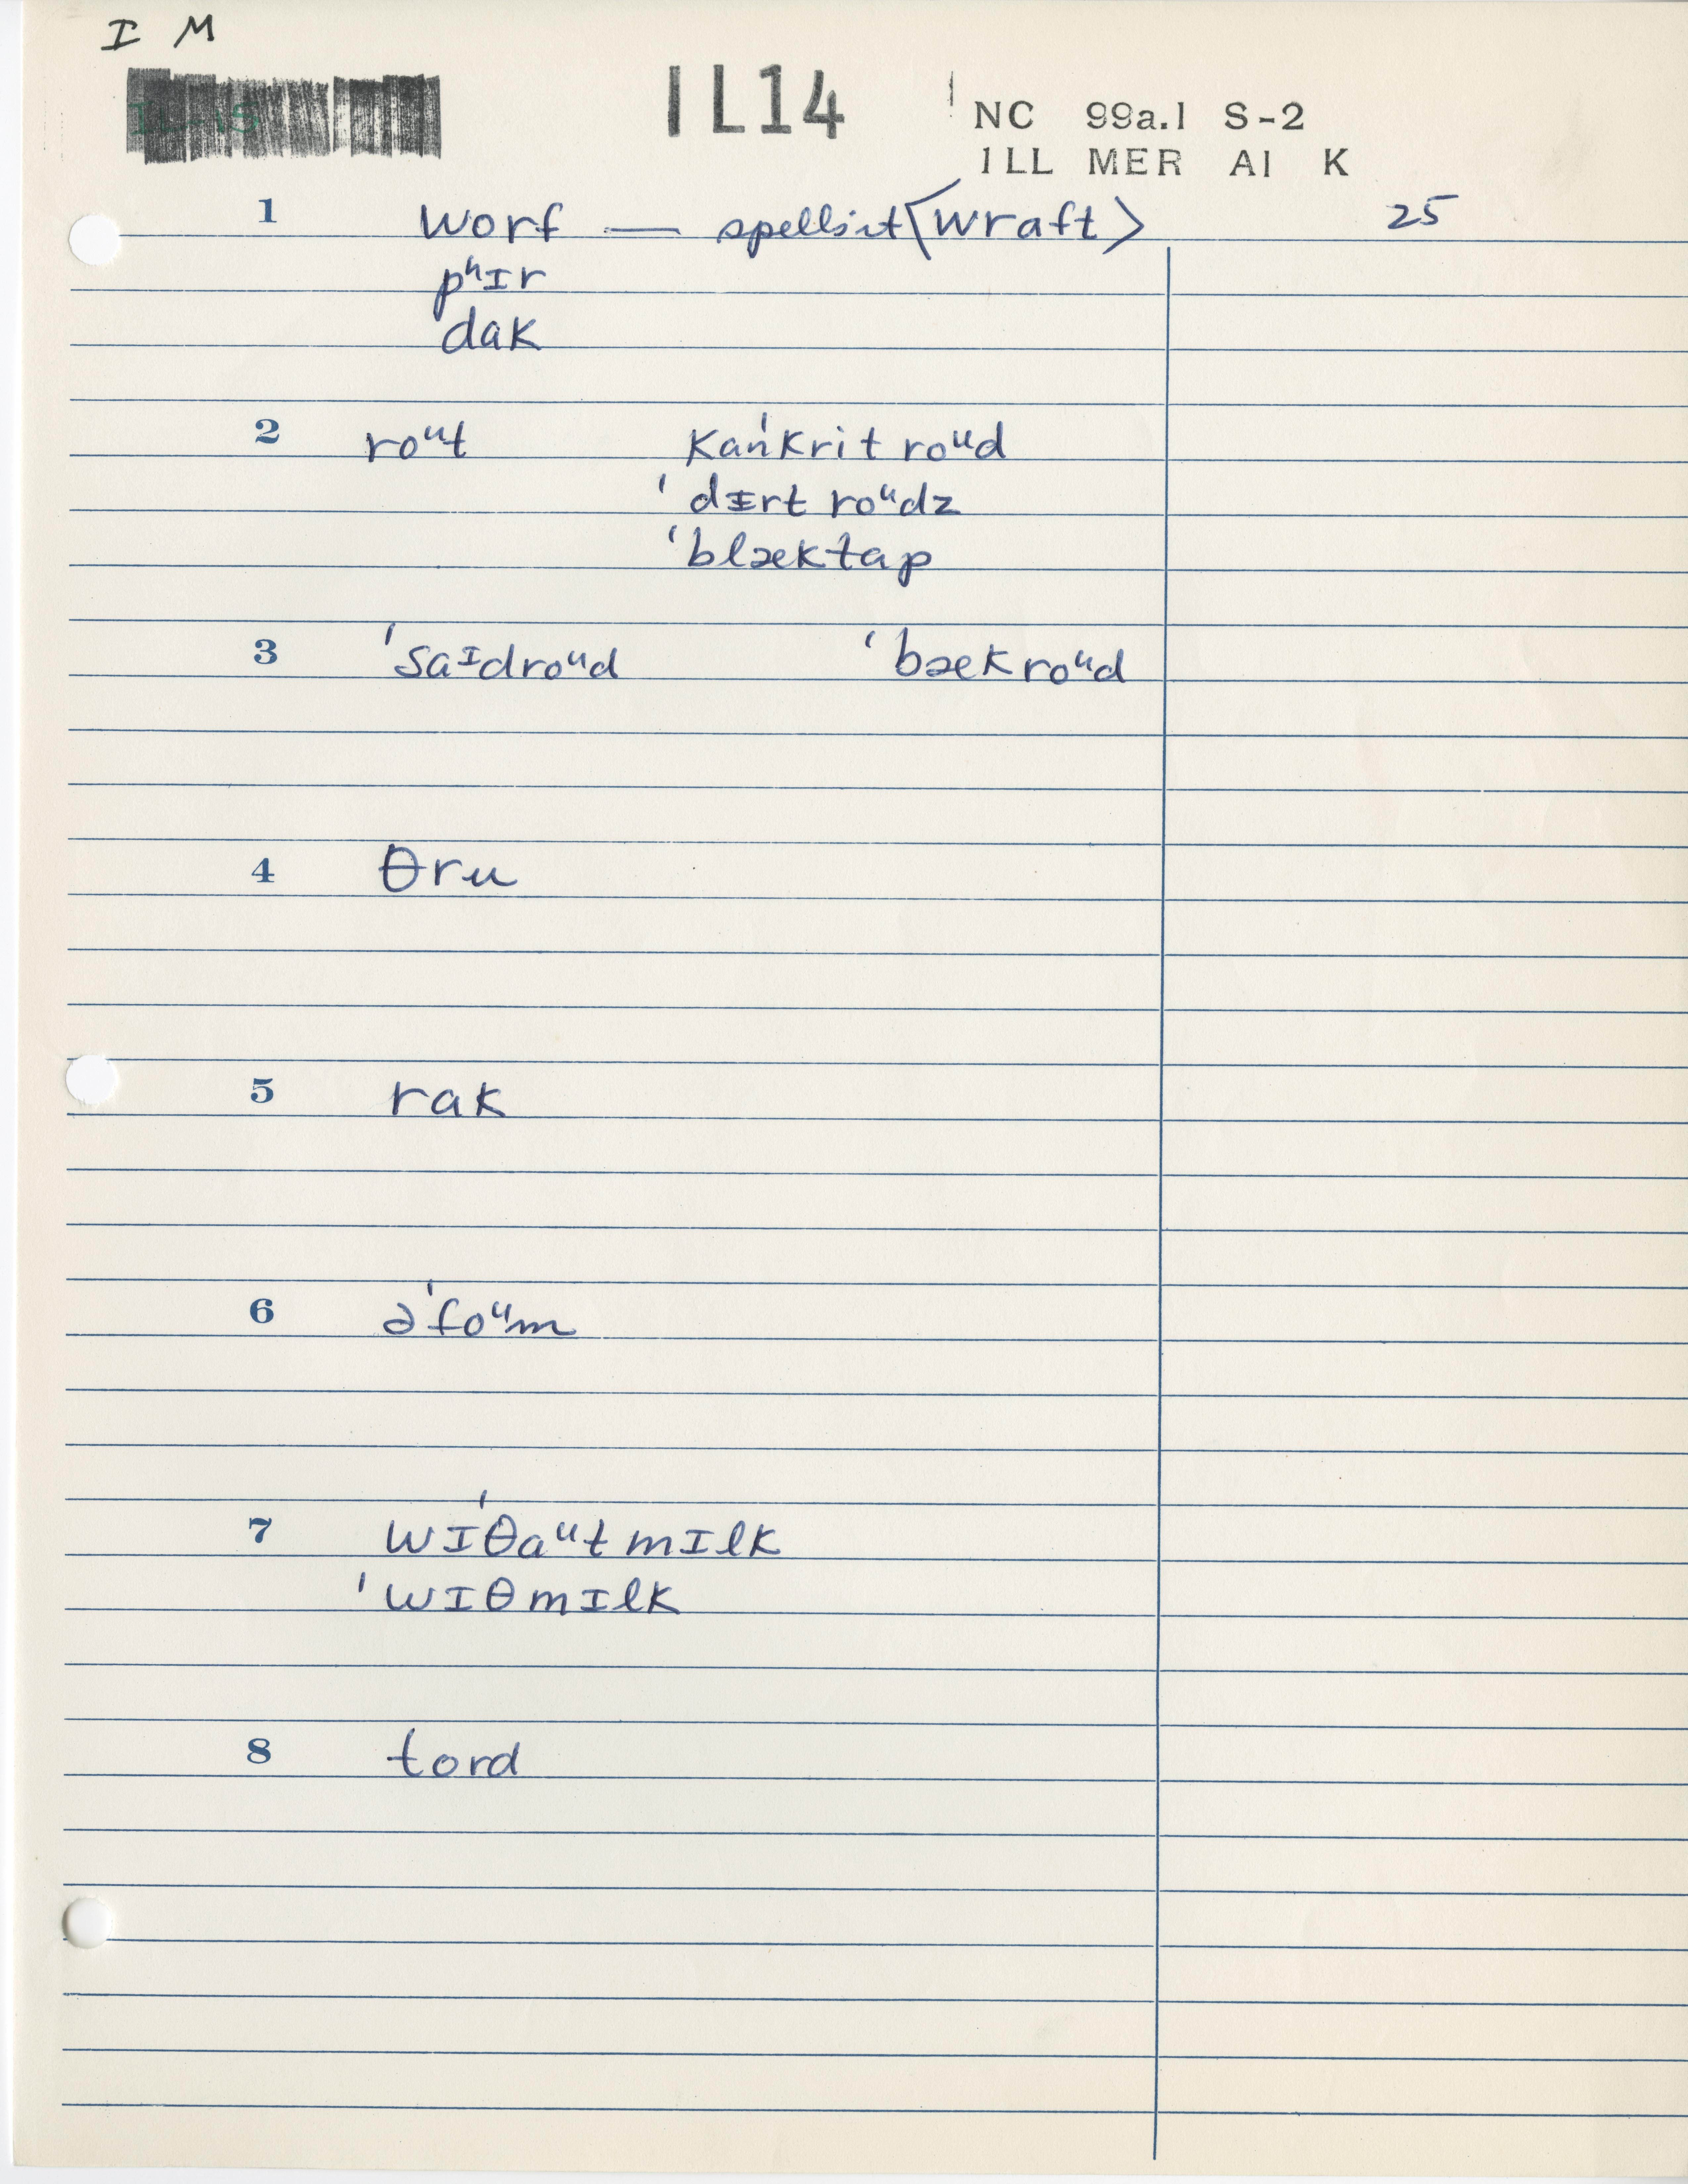 I M
IL14
NC 99a.1 S-2
ILL MER A1 K
1 worf — spells it <wraft> 25
pʰɪr
dak
2 roᵘt ˈkankrit roᵘd
ˈdɪrt roᵘdz
ˈblæktap
3 ˈsaᶦdroᵘd ˈbækroᵘd
4 θru
5 rak
6 əˈfoᵘm
7 wɪˈθaᵘt mɪlk
ˈwɪθmɪlk
8 tord